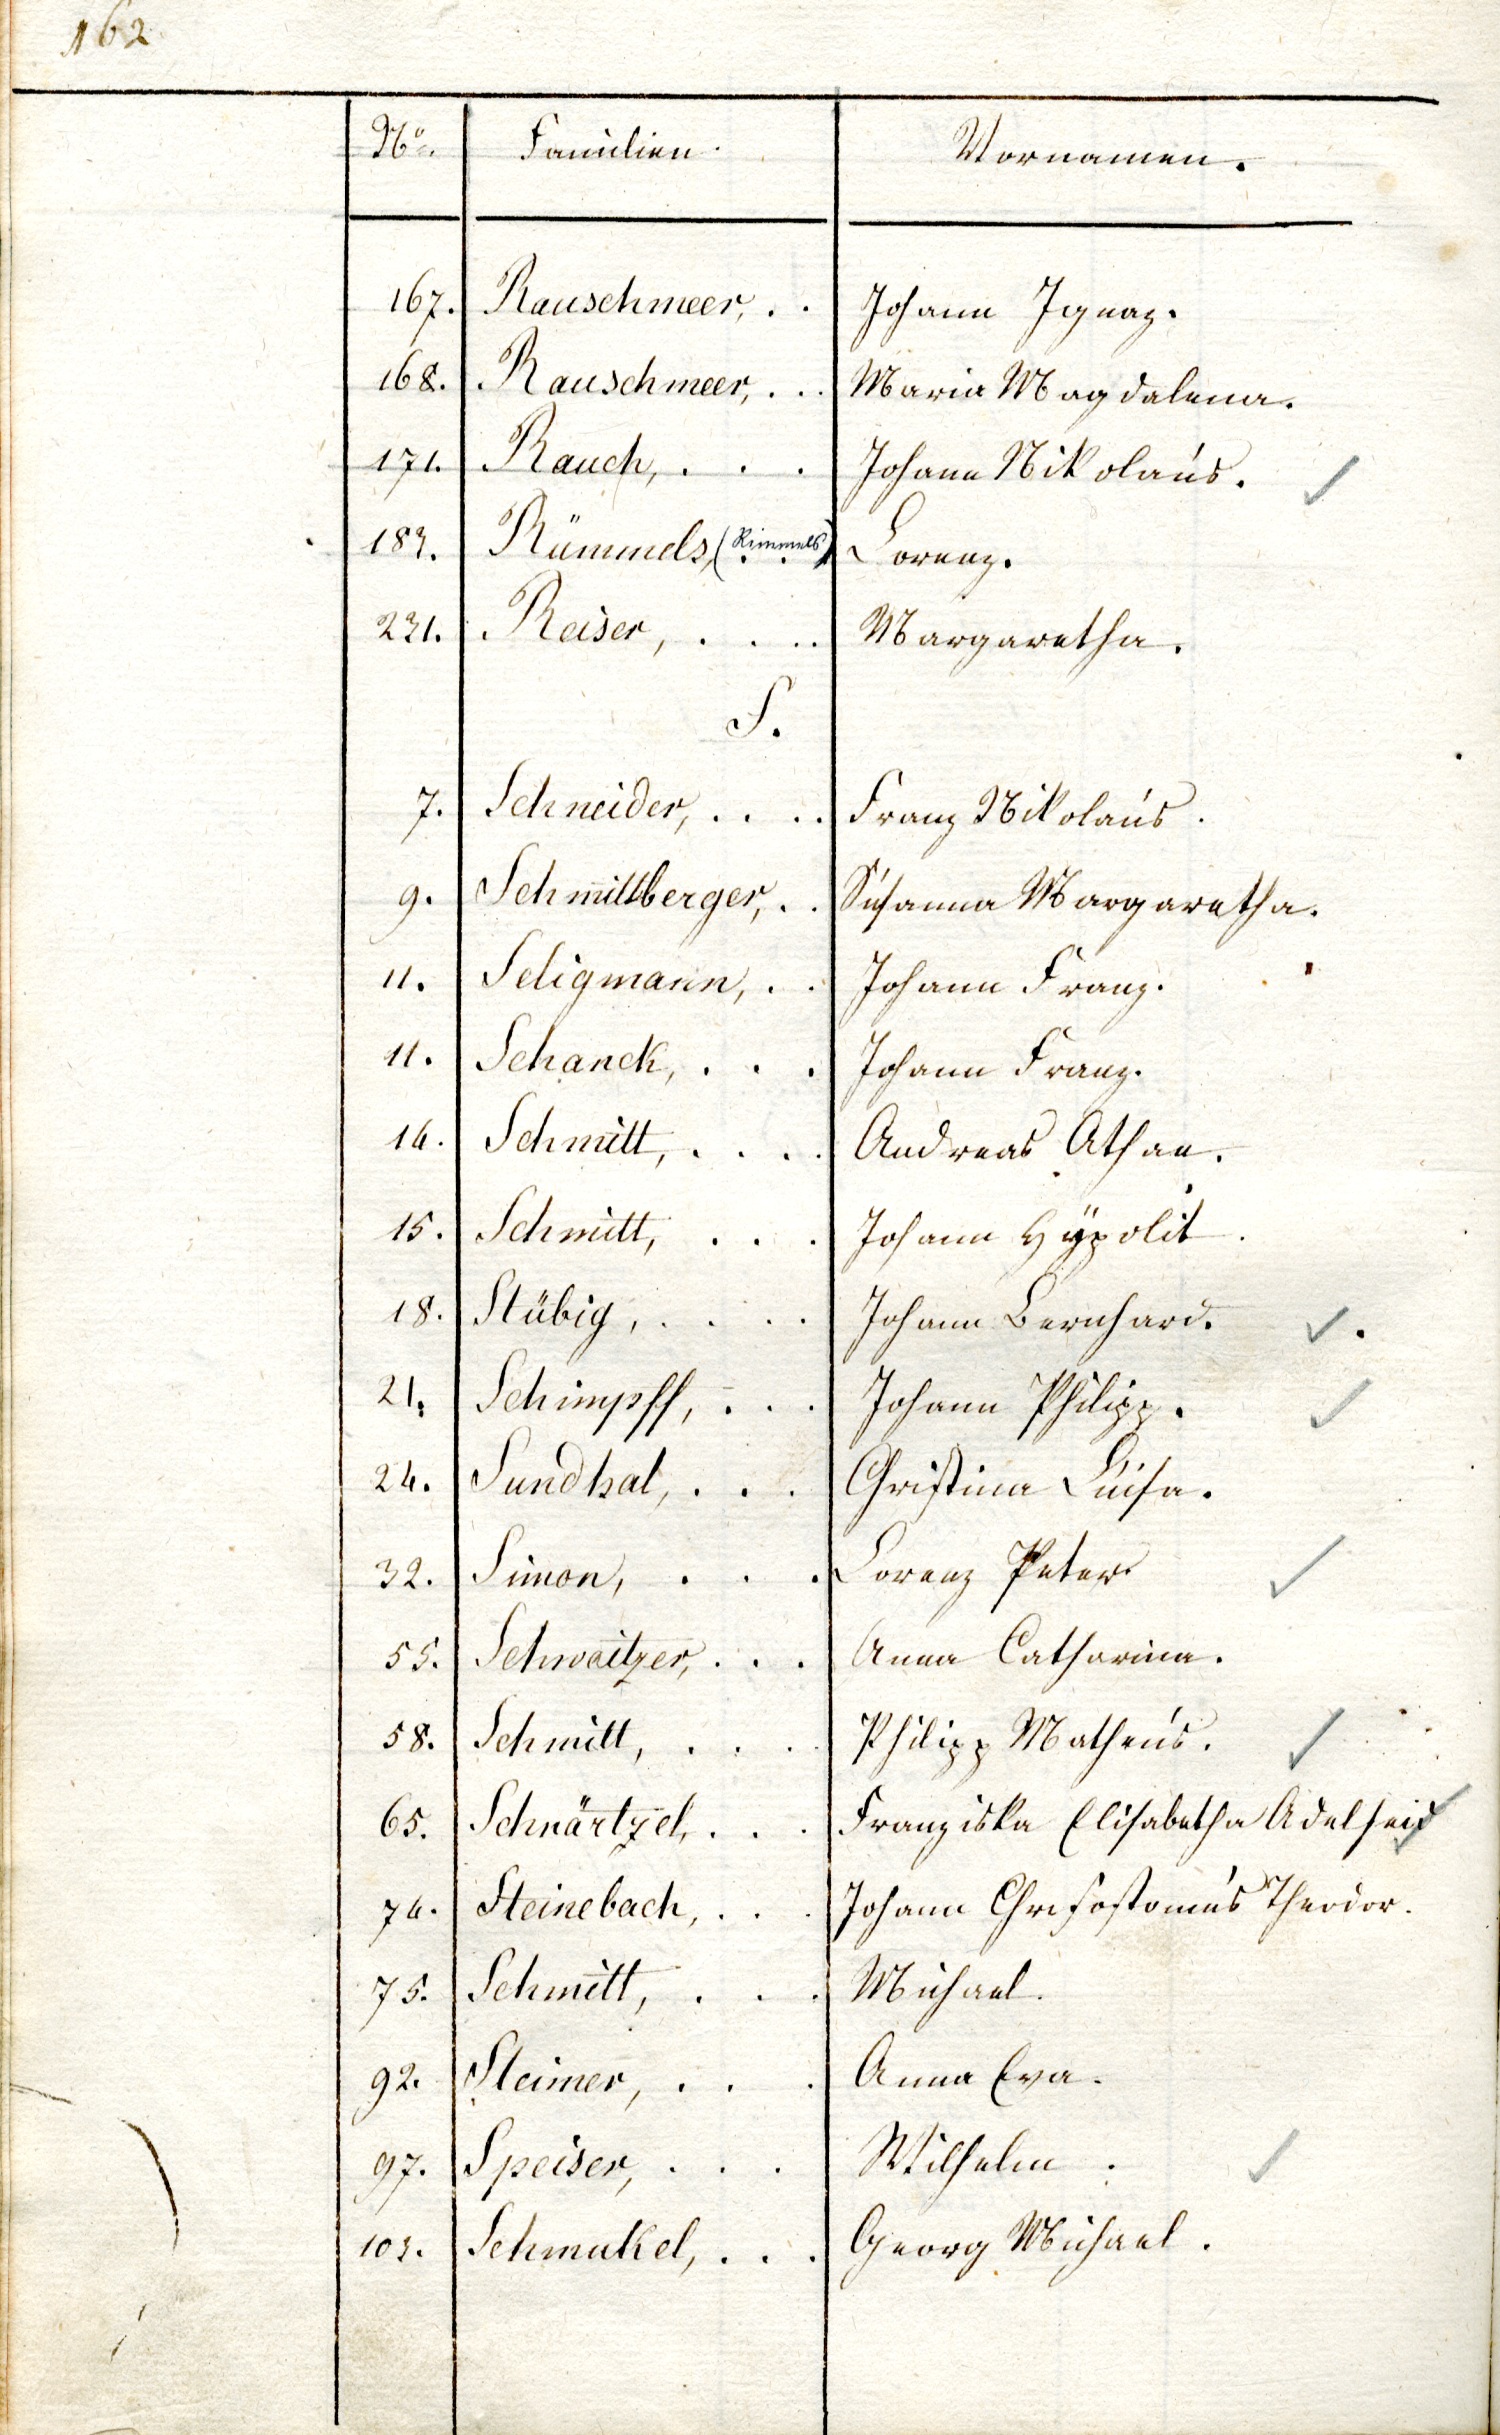 162
No. Familien. Vornamen.
167. Rauschmeer, . . Johann Ignaz.
168. Rauschmeer, . . . Maria Magdalena.
171. Rauch, . . . Johann Nikolaus. ✓
183. Rümmels, (Rimmels) Lorenz.
231. Reiser, . . . . Margaretha.
S.
7. Schneider, . . . . Franz Nikolaus.
9. Schmittberger, . . Susanna Margaretha.
11. Seligmann, . . Johann Franz.
11. Schanck, . . . Johann Franz.
14. Schmitt, . . . . Andreas Athan.
15. Schmitt, . . . Johann Hÿpolit.
18. Stübig, . . . . Johann Bernhard. ✓
21. Schimpff, . . . Johann Philipp. ✓
24. Sundhal, . . . Christina Luisa.
32. Simon, . . . Lorenz Peter ✓
55. Schwaitzer, . . . Anna Catharina.
58. Schmitt, . . . Philipp Matheus. ✓
65. Schnärtzel, . . . Franziska Elisabetha Adelheid ✓
74. Steinebach, . . . Johann Chrisostomus Theodor.
75. Schmitt, . . . Michael.
92. Steimer, . . . Anna Eva.
97. Speiser, . . . Wilhelm. ✓
103. Schmukel, . . . Georg Michael.